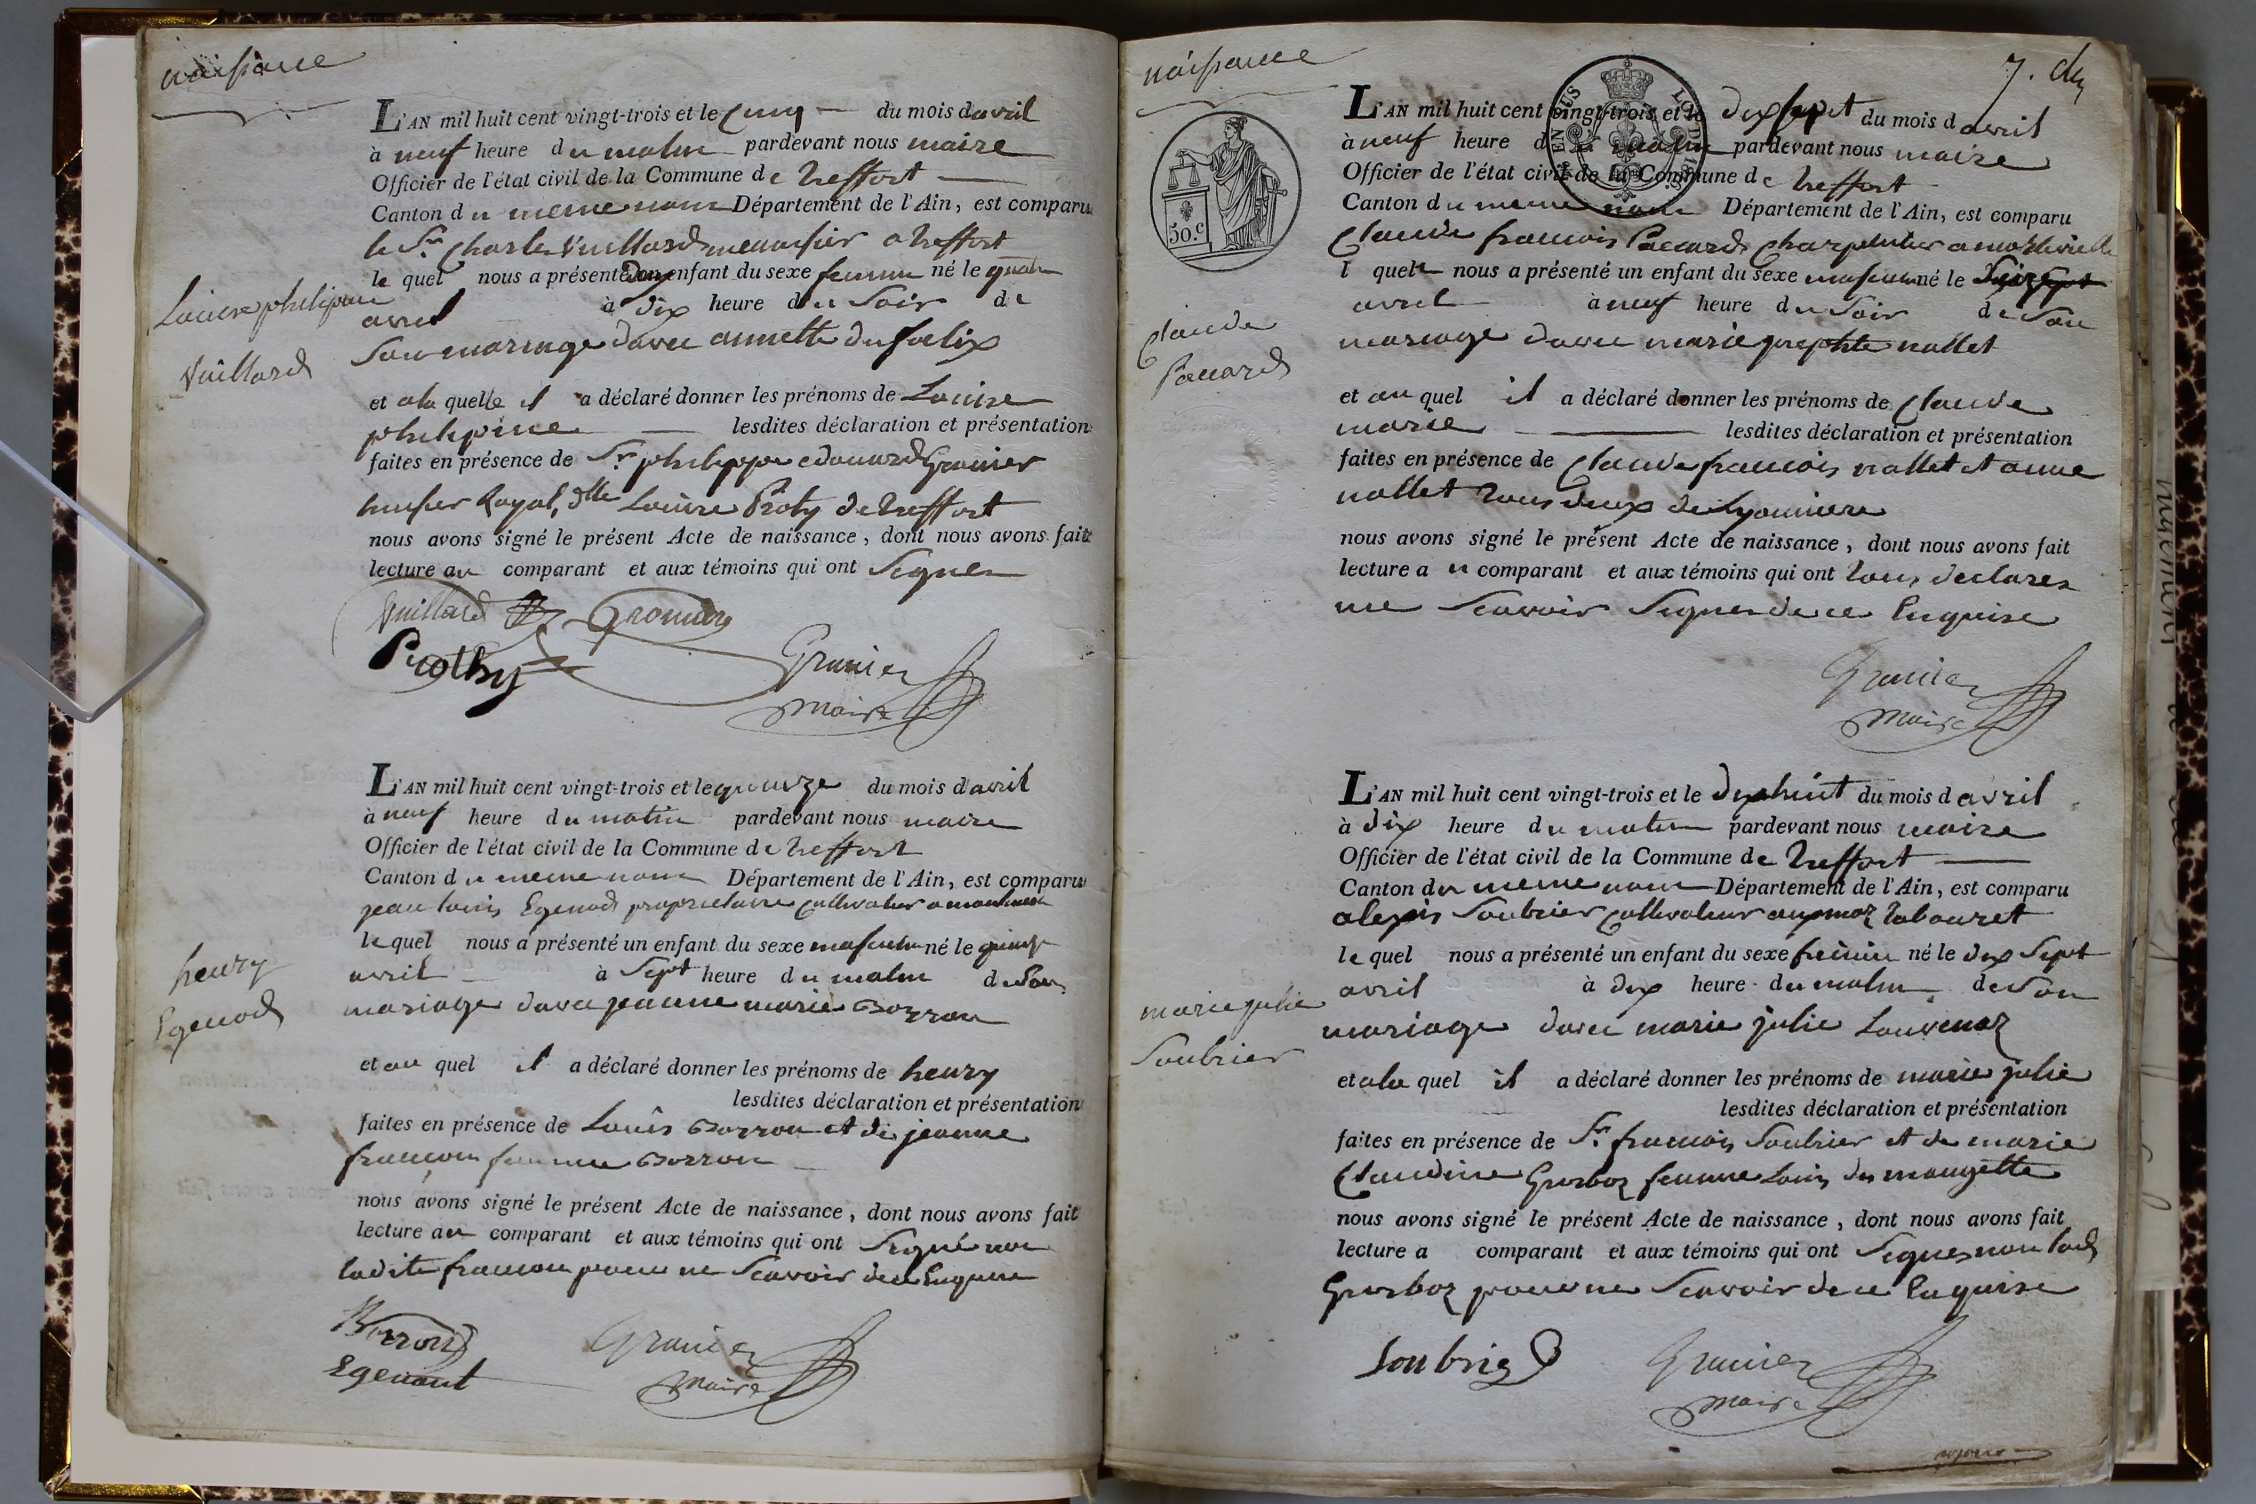 naissance
L'AN mil huit cent vingt-trois et le cinq du mois d avril
à neuf heure du matin pardevant nous maire
Officier de l'état civil de la Commune de treffort
Canton du meme nom Département de l'Ain, est comparu
le Sr. Charles Vuillard menuisier a treffort
le quel nous a présenté un enfant du sexe feminin né le quatre
avril à dix heure du Soir de
Son mariage davec annette dufelix
Louise philipine
Vuillard
et ala quelle il a déclaré donner les prénoms de Louise
philipine lesdites déclaration et présentation
faites en présence de Sr. philippe edouard Granier
huisier Royal, dlle Louise Proty de treffort
nous avons signé le présent Acte de naissance, dont nous avons fait
lecture au comparant et aux témoins qui ont Signer
Vuillard
Prothy
Granier
maire
L'AN mil huit cent vingt-trois et le quinze du mois d'avril
à neuf heure du matin pardevant nous maire
Officier de l'état civil de la Commune de treffort
Canton du meme nom Département de l'Ain, est comparu
jean louis Egenod proprietaire cultivateur a
le quel nous a présenté un enfant du sexe masculin né le quinze
avril à Sept heure du matin de Son
mariage davec jeanne marie Borron
henry
Egenod
et au quel il a déclaré donner les prénoms de henry
lesdites déclaration et présentation
faites en présence de Louis Borron et de jeanne
francon femme Borron
nous avons signé le présent Acte de naissance, dont nous avons fait
lecture au comparant et aux témoins qui ont Signé non
ladite francon pour ne Scavoir de ce Enquise
Borron
Egenout
Granier
maire
naissance
7.
50.c
L'AN mil huit cent vingt-trois et le dix sept du mois d avril
à neuf heure du matin pardevant nous maire
Officier de l'état civil de la Commune de treffort
Canton du meme nom Département de l'Ain, est comparu
Claude francois Paccard charpentier a
l quel nous a présenté un enfant du sexe masculin né le
avril à neuf heure du Soir de Son
mariage davec marie josephte nallet
Claude
Paccard
et au quel il a déclaré donner les prénoms de Claude
marie lesdites déclaration et présentation
faites en présence de Claude francois nallet et anne
nallet tous deux de Lyonniere
nous avons signé le présent Acte de naissance, dont nous avons fait
lecture au comparant et aux témoins qui ont tous declarer
ne Scavoir Signer de ce Enquise
Granier
maire
L'AN mil huit cent vingt-trois et le dix huit du mois d avril
à dix heure du matin pardevant nous maire
Officier de l'état civil de la Commune de treffort
Canton du meme nom Département de l'Ain, est comparu
alexis Soubrier cultivateur au maz tabouret
le quel nous a présenté un enfant du sexe feminin né le dix Sept
avril à dix heure du matin de Son
mariage davec marie julie Louvenaz
marie julie
Soubrier
et ala quel il a déclaré donner les prénoms de marie julie
lesdites déclaration et présentation
faites en présence de Sr. francois Soubrier et de marie
Claudine Grosboz femme Louis des mangette
nous avons signé le présent Acte de naissance, dont nous avons fait
lecture a comparant et aux témoins qui ont Signer non lad
Grosboz pour ne Scavoir de ce Enquise
Soubrier
Granier
maire